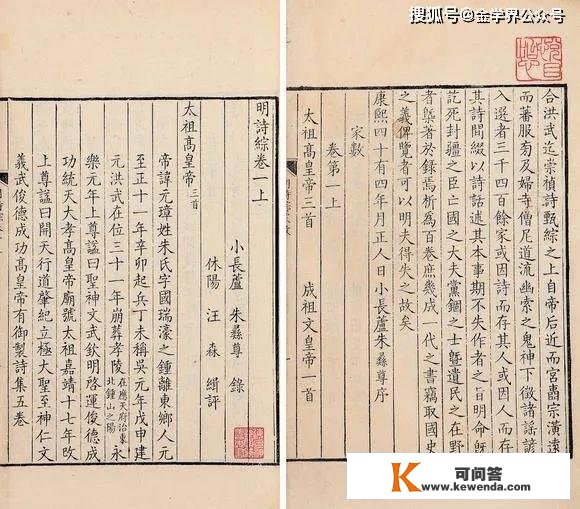 搜狐号@金学界公众号
合洪武迄崇禎詩甄綜之上自帝后近而宮壼宗潢遠
而蕃服旁及婦寺僧尼道流幽索之鬼神下徵諸謠諺
入選者三千四百餘家或因詩而存其人或因人而存
其詩間綴以詩話述其本事期不失作者之旨明命旣
訖死封疆之臣亡國之大夫黨錮之士曁遺民之在野
者槩著於錄焉析爲百卷庶幾成一代之書竊取國史
之義俾覽者可以明夫得失之故矣
康熙四十有四年月正人日小長蘆朱彝尊序
家數
卷第一上
太祖高皇帝三首 成祖文皇帝一首
明詩綜卷一上
小長蘆 朱彝尊 錄
休陽 汪森 緝評
太祖高皇帝三首
帝諱元璋姓朱氏字國瑞濠之鍾離東鄉人元
至正十一年辛卯起兵丁未稱吳元年戊申建
元洪武在位三十一年崩葬孝陵在應天府治東北鍾山之陽永
樂元年上尊謚曰聖神文武欽明啓運俊德成
功統天大孝高皇帝廟號太祖嘉靖十七年改
上尊謚曰開天行道肇紀立極大聖至神仁文
義武俊德成功高皇帝有御製詩集五卷
K
可问答
www.kewenda.com